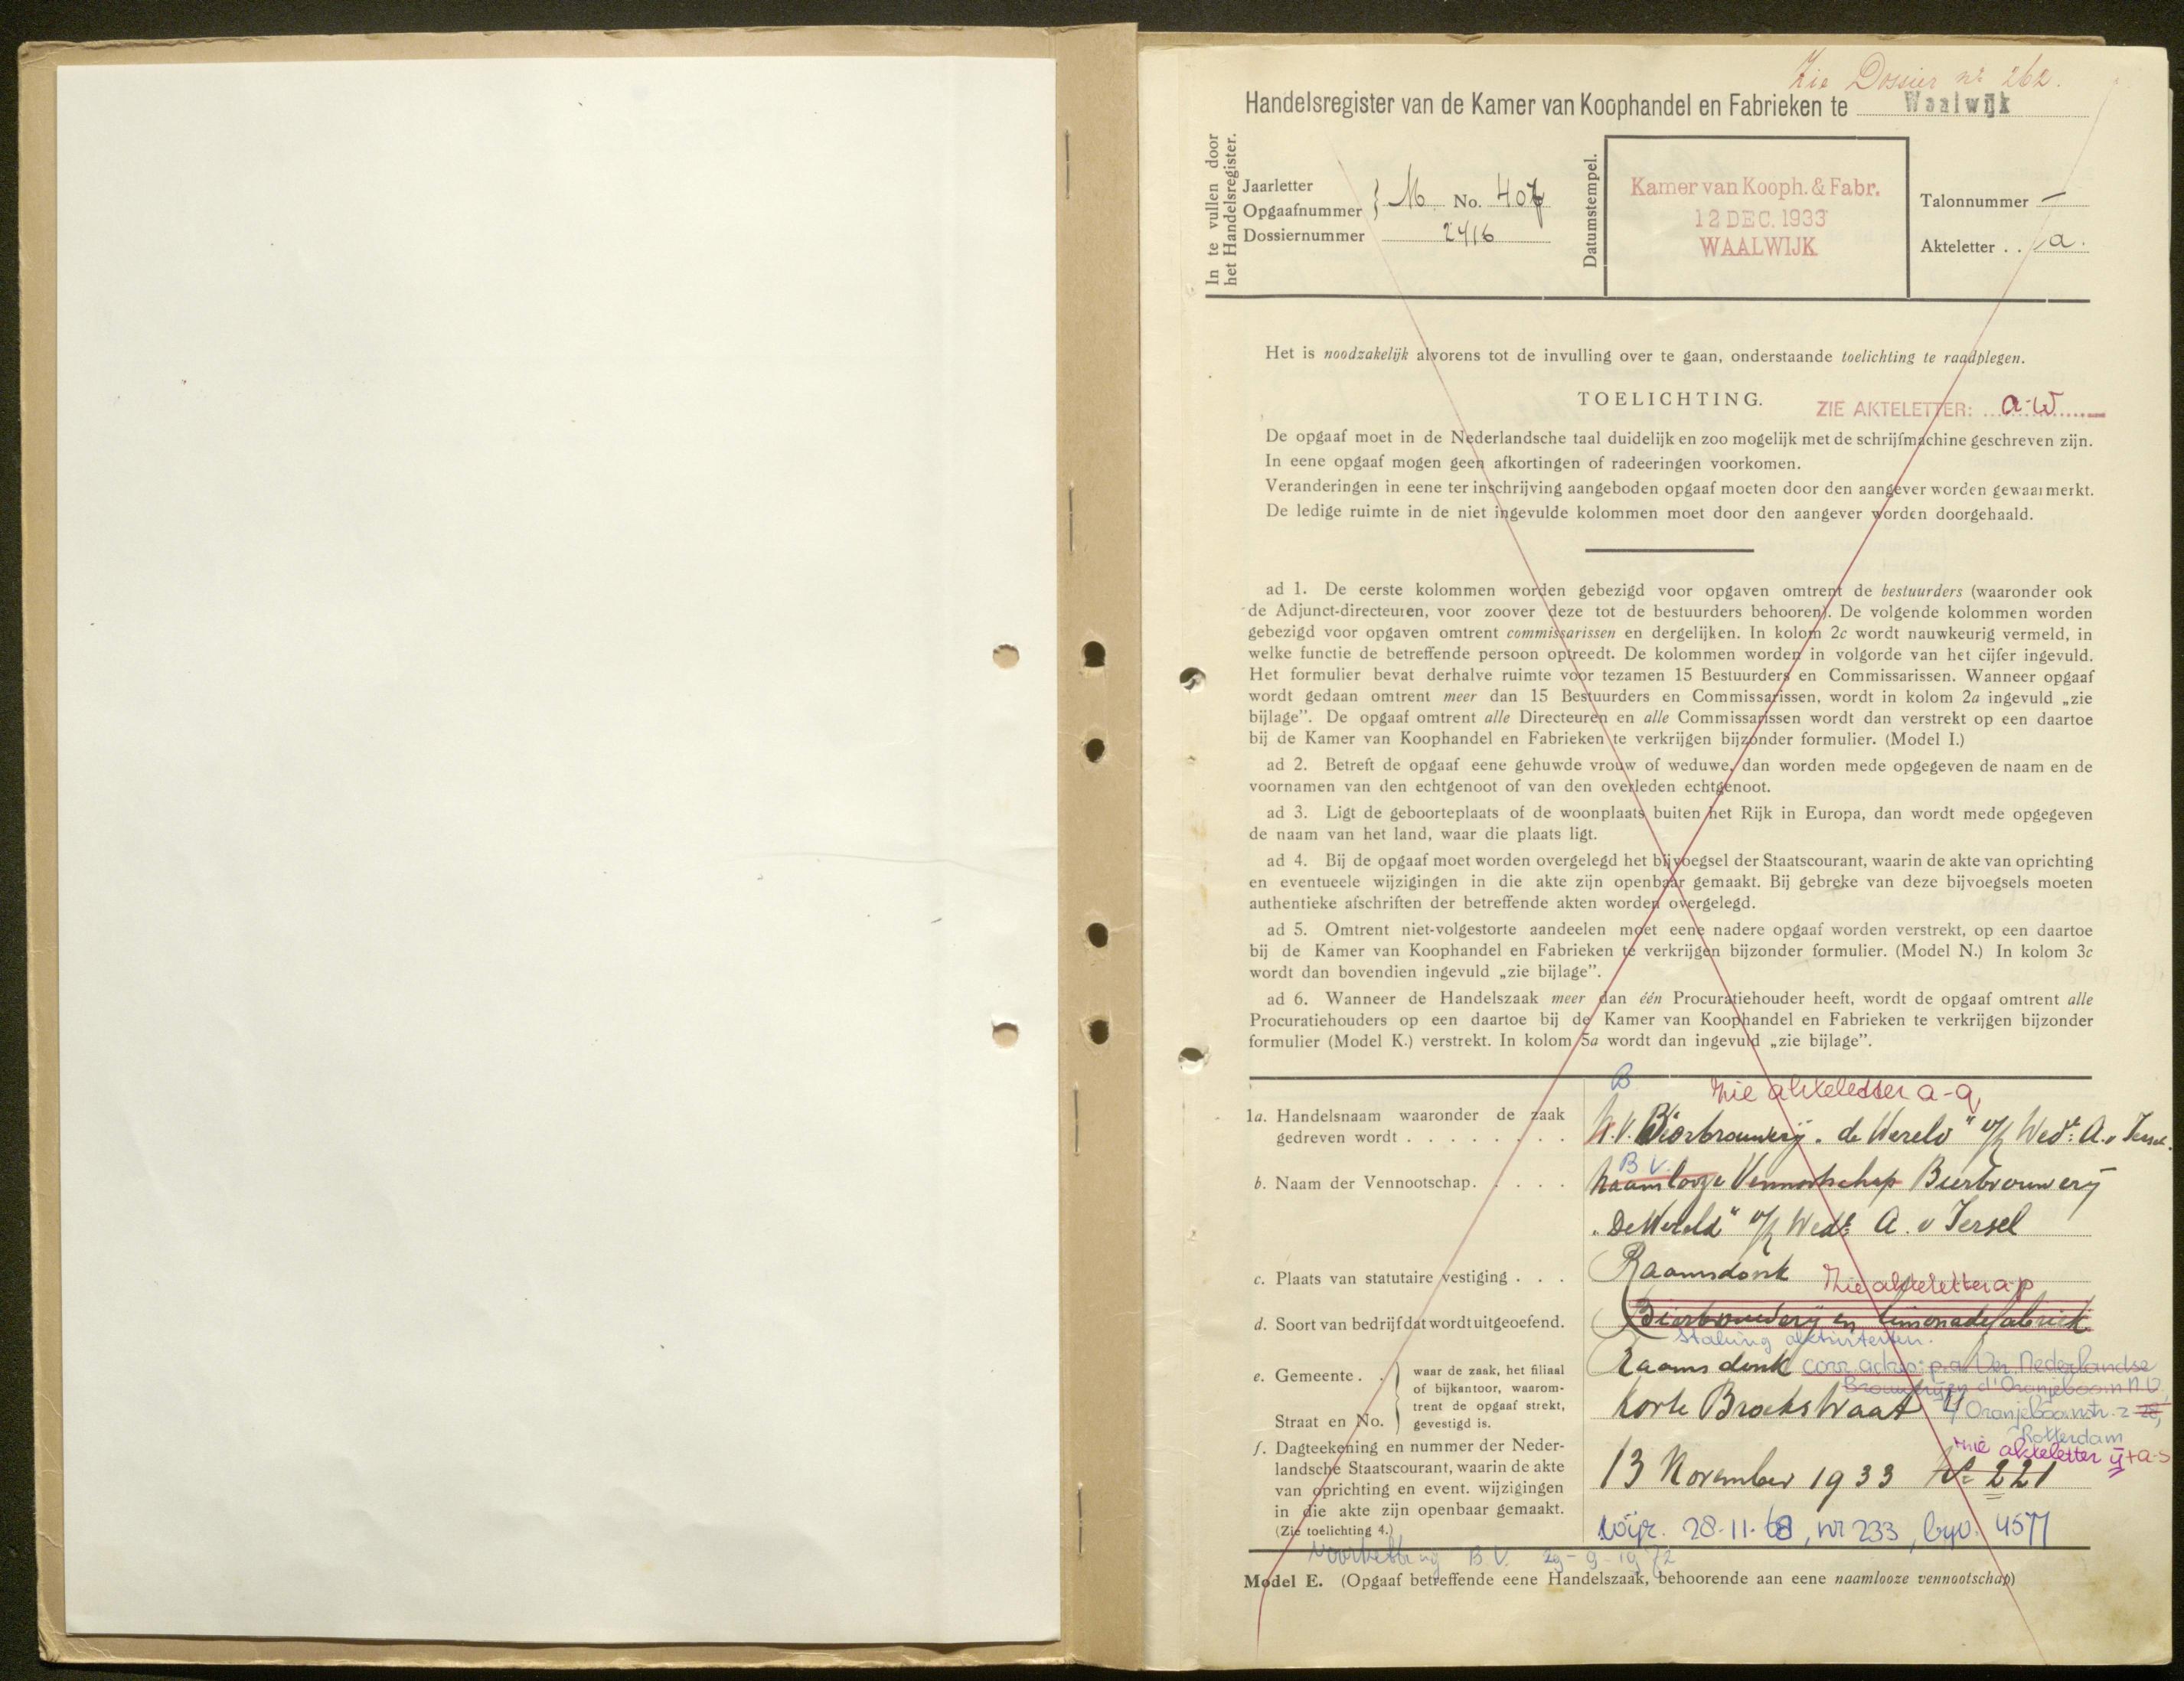 Zie Dossier no 262.
Handelsregister van de Kamer van Koophandel en Fabrieken te Waalwijk
In te vullen door
het Handelsregister.
Jaarletter
Opgaafnummer } M No. 407
Dossiernummer 2416
Datumstempel.
Kamer van Kooph. & Fabr.
12 DEC. 1933
WAALWIJK
Talonnummer —
Akteletter . . a.
Het is noodzakelijk alvorens tot de invulling over te gaan, onderstaande toelichting te raadplegen.
TOELICHTING.
ZIE AKTELETTER: a-w
De opgaaf moet in de Nederlandsche taal duidelijk en zoo mogelijk met de schrijfmachine geschreven zijn.
In eene opgaaf mogen geen afkortingen of radeeringen voorkomen.
Veranderingen in eene ter inschrijving aangeboden opgaaf moeten door den aangever worden gewaarmerkt.
De ledige ruimte in de niet ingevulde kolommen moet door den aangever worden doorgehaald.
ad 1. De eerste kolommen worden gebezigd voor opgaven omtrent de bestuurders (waaronder ook
de Adjunct-directeuren, voor zoover deze tot de bestuurders behooren). De volgende kolommen worden
gebezigd voor opgaven omtrent commissarissen en dergelijken. In kolom 2c wordt nauwkeurig vermeld, in
welke functie de betreffende persoon optreedt. De kolommen worden in volgorde van het cijfer ingevuld.
Het formulier bevat derhalve ruimte voor tezamen 15 Bestuurders en Commissarissen. Wanneer opgaaf
wordt gedaan omtrent meer dan 15 Bestuurders en Commissarissen, wordt in kolom 2a ingevuld „zie
bijlage”. De opgaaf omtrent alle Directeuren en alle Commissarissen wordt dan verstrekt op een daartoe
bij de Kamer van Koophandel en Fabrieken te verkrijgen bijzonder formulier. (Model I.)
ad 2. Betreft de opgaaf eene gehuwde vrouw of weduwe, dan worden mede opgegeven de naam en de
voornamen van den echtgenoot of van den overleden echtgenoot.
ad 3. Ligt de geboorteplaats of de woonplaats buiten het Rijk in Europa, dan wordt mede opgegeven
de naam van het land, waar die plaats ligt.
ad 4. Bij de opgaaf moet worden overgelegd het bijvoegsel der Staatscourant, waarin de akte van oprichting
en eventueele wijzigingen in die akte zijn openbaar gemaakt. Bij gebreke van deze bijvoegsels moeten
authentieke afschriften der betreffende akten worden overgelegd.
ad 5. Omtrent niet-volgestorte aandeelen moet eene nadere opgaaf worden verstrekt, op een daartoe
bij de Kamer van Koophandel en Fabrieken te verkrijgen bijzonder formulier. (Model N.) In kolom 3c
wordt dan bovendien ingevuld „zie bijlage”.
ad 6. Wanneer de Handelszaak meer dan één Procuratiehouder heeft, wordt de opgaaf omtrent alle
Procuratiehouders op een daartoe bij de Kamer van Koophandel en Fabrieken te verkrijgen bijzonder
formulier (Model K.) verstrekt. In kolom 5a wordt dan ingevuld „zie bijlage”.
B. Zie akteletter a-q
1a. Handelsnaam waaronder de zaak
gedreven wordt . . . . . . . . N.V. Bierbrouwerij „de Wereld" v/h Wede. A. v Iersel.
B.V.
b. Naam der Vennootschap. . . . . Naamlooze Vennootschap Bierbrouwerij
„De Wereld" v/h Wede. A. v Iersel
c. Plaats van statutaire vestiging . . . Raamsdonk Zie akteletter a-p
d. Soort van bedrijf dat wordt uitgeoefend. Bierbrouwerij en limonadefabriek
Staking aktiviteiten.
e. Gemeente . . Raamsdonk corr. adres: p.a. Ver. Nederlandse
Brouwerijen d'Oranjeboom N.V.
Straat en No. } waar de zaak, het filiaal
of bijkantoor, waarom-
trent de opgaaf strekt,
gevestigd is.
Korte Broekstraat 4 Oranjeboomstr. 2 28,
Rotterdam
Zie akteletter ij + a-s
f. Dagteekening en nummer der Neder-
landsche Staatscourant, waarin de akte
van oprichting en event. wijzigingen
in die akte zijn openbaar gemaakt.
(Zie toelichting 4.)
13 November 1933 No 221
wijz. 28-11-68, nr 233, byv. 4577
Voortzetting B.V. 29-9-1972
Model E. (Opgaaf betreffende eene Handelszaak, behoorende aan eene naamlooze vennootschap)